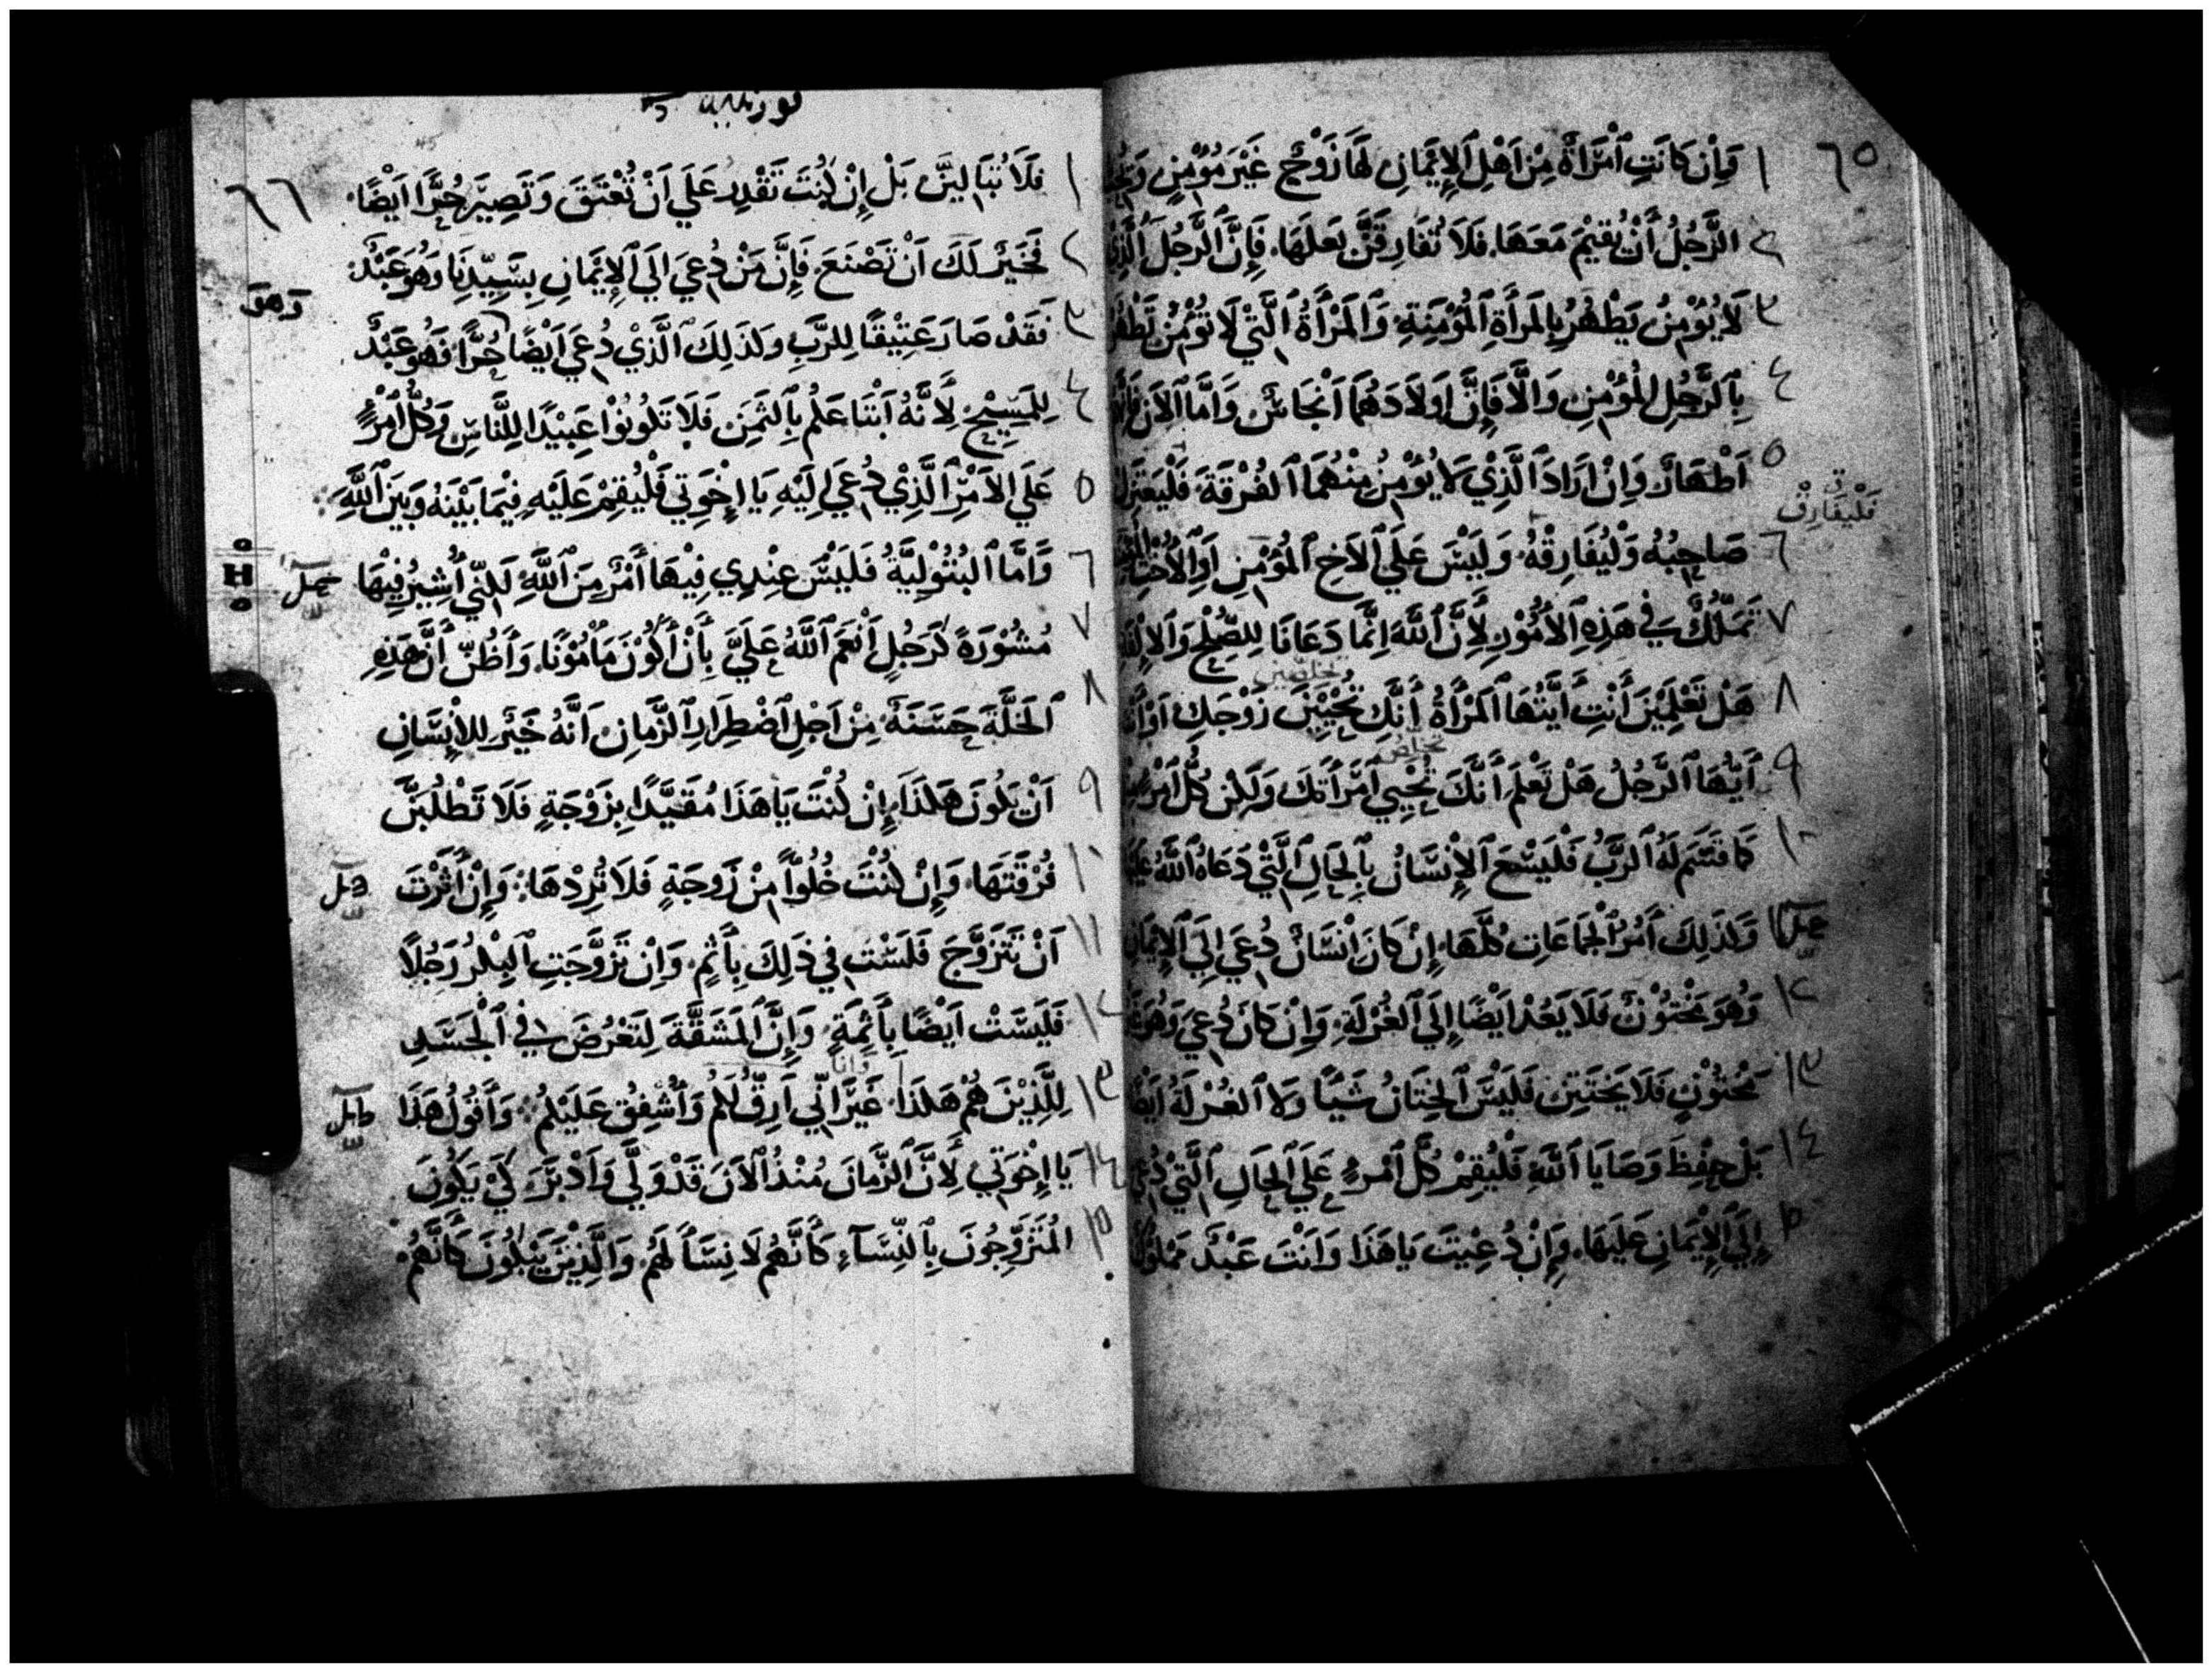 ٦٥
١ وَإِنْ كَانَتِ ٱمْرَأَةٌ مِنْ اَهْلِ ٱلإِيْمَانِ لَهَا زَوْجٌ غَيْرَ مُؤْمِنٍ
٢ الرَّجُلُ أَنْ يُقِيْمَ مَعَهَا. فَلَا تُفَارِقَنَّ بَعلَهَا. فَإِنَّ ٱلرَّجُلَ ٱلَّذِي
٣ لَا يُؤْمِنُ يَطْهُرُ بِالمَرأَةِ ٱلمُؤْمِنَةِ وَٱلمَرْأَةُ ٱلَّتْي لَا تُؤْمِنُ تَطْهُرُ
٤ بِٱلرَّجُلِ المُؤْمِنِ وَالَّا فَإِنَّ اَولَادَهُمَا اَنْجَاسٌ وَاَمَّا ٱلآنَ
٥ اَطْهَارٌ وَاِنْ اَرَادَ ٱلَّذِيْ لَا يُؤْمِنُ مِنْهُمَا ٱلفُرْقَةَ فَلْيَعتَزِلْ
فَلْيُفَارِقْ
٦ صَاحِبُهُ وَلْيُفَارِقْهُ. وَلَيْسَ عَلَي ٱلاَخِ ٱلمُؤْمِنِ اَوِ ٱلاُخْتِ
٧ تَمَلُّكٌ فِي هَذِهِ ٱلاُمُوْرِ لِأَنَّ ٱللَّهَ اِنَّمَا دَعَانَا لِلصُّلْحِ وَٱلاِلْفَةِ
تخلصين
٨ هَلْ تَعْلَمِيْنَ أَنْتِ أَيَّتُهَا ٱلمَرْأَةُ أَنَّكِ تُحْيِيْنَ زَوْجَكِ اَوْ أَنْتَ
تخلص
٩ أَيُّهَا ٱلرَّجُلُ هَلْ تَعْلَمَ أَنَّكَ تُحْيِي ٱمْرَأَتَكَ وَلَكِنْ كُلُّ ٱمْرِءٍ
١٠ كَمَا قَسَمَ لَهُ ٱلرَّبُّ فَلْيَسْعَ ٱلإِنْسَانُ بِٱلحَالِ ٱلَّتْي دَعَاهُ ٱللَّهُ عَلَيْهَا
١١ وَكَذَلِكَ آمُرُ ٱلْجَمَاعَاتِ كُلَّهَا. إِنْ كَانَ اِنْسَانٌ دُعِيَ اِلَي ٱلإِيْمَانِ
١٢ وَهُوَ مَخْتُوْنٌ فَلَا يَعُدْ اَيْضًا إِلَي ٱلغُرْلَةِ. وَاِنْ كَانَ دُعِيَ وَهُوَ غَيْرَ
١٣ مَخْتُوْنٍ فَلَا يَخْتَتِنْ فَلَيْسَ ٱلخِتَانُ شَيْئًا وَلَا ٱلغُرْلَةُ اَيْضًا
١٤ بَلْ حِفْظَ وَصَايَا ٱللَّهِ فَلْيُقِمْ كُلُّ ٱمْرِءٍ عَلَي ٱلحَالِ ٱلَّتْي دُعِيَ
١٥ إِلَي ٱلإِيْمَانِ عَلَيهَا. وَإِنْ دُعِيْتَ يَا هَذَا وَاَنْتَ عَبْدٌ مَمْلُوْكٌ
٦٦
١ فَلَا تُبَالِيَنَّ بَلْ إِنْ كُنْتَ تَقْدِرُ عَلَي اَنْ تُعْتَقَ وَتَصِيْرَ حُرًّا اَيْضًا.
٢ فَخَيْرٌ لَكَ اَنْ تَصْنَعَ. فَإِنَّ مَنْ دُعِيَ اِلَي ٱلإِيْمَانِ بِسَيِّدِنَا وَهُوَ عَبْدٌ
وَهوَ
٣ فَقَدْ صَارَ عَتِيْقًا لِلرَّبِ وَكَذَلِكَ ٱلَّذِيْ دُعِيَ اَيْضًا حُرًّا فَهُوَ عَبْدٌ
٤ لِلمَسِيْحِ لِأَنَّهُ ٱبْتَاعَكُمْ بِٱلثَّمَنِ فَلَا تَكُونُوْا عَبِيْدًا لِلنَّاسِ وَكُلُّ ٱمْرِءٍ
٥ عَلَي ٱلاَمْرِ ٱلَّذِيْ دُعِيَ إِلَيْهِ يَا إِخْوَتِي فَلْيُقِمْ عَلَيْهِ فِيْمَا بَيْنَهُ وَبَيْنَ ٱللَّهِ
٦ وَاَمَّا ٱلبُتُوْلِيَّةُ فَلَيْسَ عِنْدِي فِيْهَا أَمْرٌ مِنَ ٱللَّهِ لَكِنِّي أُشِيْرُ فِيْهَا
٧ مُشُوْرَةً كَرَجُلٍ أَنْعَمَ ٱللَّهُ عَلَيَّ بِأَنْ أَكُوْنَ مَأْمُوْنًا. وَأَظُنّ أَنَّ هَذِهِ
٨ ٱلخَلَّةَ حَسَنَةٌ مِنْ اَجْلِ ٱضْطِرَارِ ٱلزَّمَانِ اَنَّهُ خَيْرٌ لِلاِنْسَانِ
٩ اَنْ يَكُونَ هَكَذَا. إِنْ كُنْتَ يَا هَذَا مُقَيَّدًا بِزَوْجَةٍ فَلَا تَطْلُبَنَّ
١٠ فُرْقَتَهَا. وَإِنْ كُنْتَ خُلُوًّا مِنْ زَوجَةٍ فَلَا تُرِدْهَا. وَإِنْ أَثَرْتَ
١١ اَنْ تَتَزَوَّجَ فَلَسْتَ فِي ذَلِكَ بِأَثِمٍ. وَاِنْ تَزَوَّجَتِ ٱلبِكْرُ رَجُلًا
١٢ فَلَيْسَتْ اَيْضًا بِأَثِمَةٍ. وَإِنَّ ٱلمَشَقَّةَ لِتَعْرُضَ فِي ٱلْجَسَدِ
وانا
١٣ لِلَّذِيْنَ هُمْ هَكَذَا. غَيْرَ اَنِّي اَرِقُّ لَكُمْ وَأُشْفِقُ عَلَيْكُمْ. وَأَقُولُ هَذَا
١٤ يَا إِخْوَتِي لِأَنَّ ٱلزَّمَانَ مُنْذُ ٱلاَنَ قَدْ وَلَّي وَاَدْبَرَ كَيْ يَكُونَ
١٥ المُتَزَوِّجُونَ بِٱلنِّسَآءِ كَأَنَّهُم لَا نِسَآ لَهُم. وَالَّذِيْنَ يَبْكُونَ كَأَنَّهُم